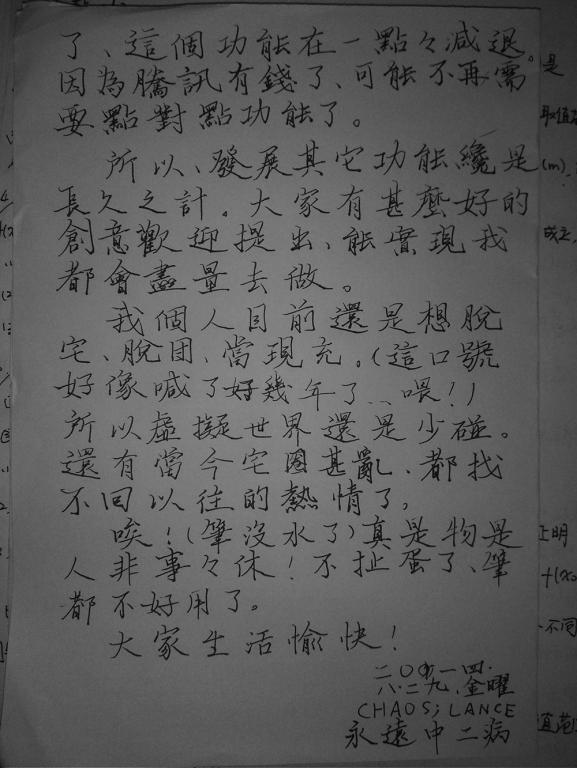 了、這個功能在一點々減退。
因為騰訊有錢了、可能不再需
要點對點功能了。
所以、發展其它功能纔是
長久之計。大家有甚麼好的
創意歡迎提出、能實現我
都會盡量去做。
我個人目前還是想脫
宅、脫団、當現充。(這口號
好像喊了好幾年了…喂!)
所以虛擬世界還是少碰。
還有當今宅圈甚亂、都找
不回以往的熱情了。
唉!(筆沒水了)真是物是
人非事々休!不扯蛋了、筆
都不好用了。
大家生活愉快!
二〇〇一四.
八.二九.金曜
CHAOS;LANCE
永遠中二病
是
取值
(m).
成立.
正明
f(x)
不同
值范